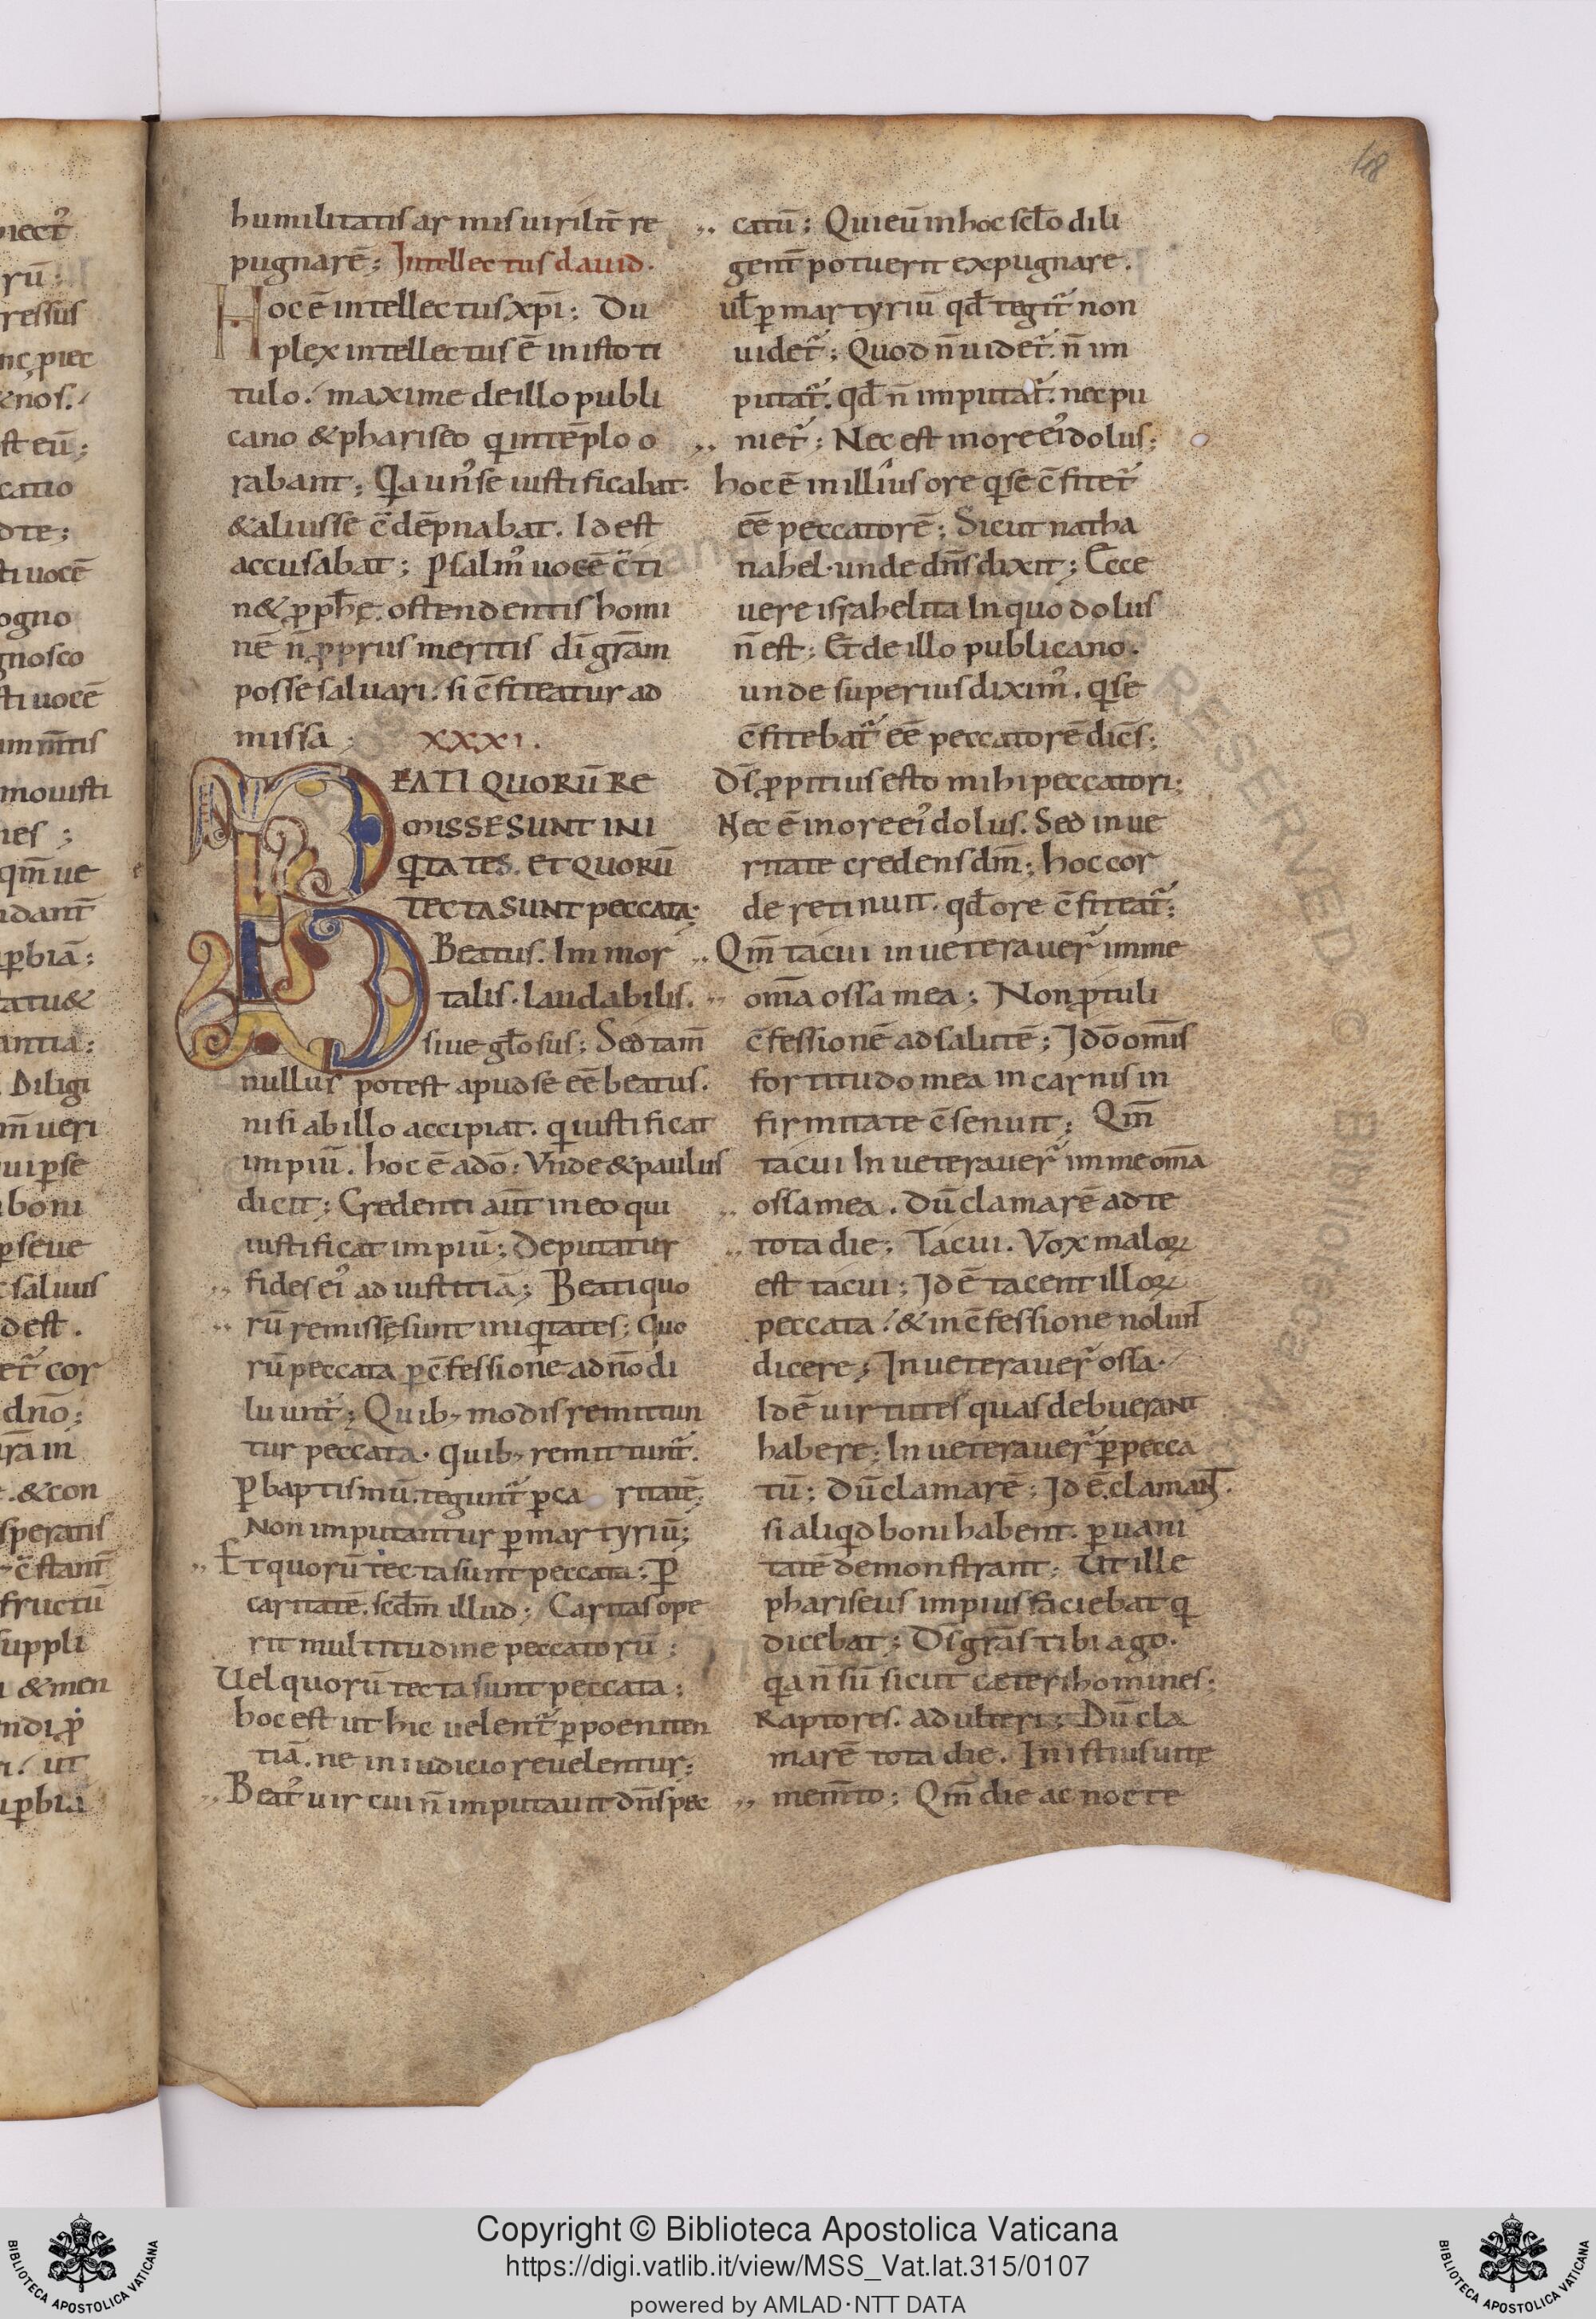 48
humilitatis armis uirilit̄ re
pugnarē; Intellectus dauid.
Hoc ē intellectus xp̄i; Du
plex intellectus ē in isto ti
tulo. maxime de illo publi
cano & phariseo qui in tēplo o
rabant; Quia unꝰ se iustificabat.
& alius se c̄dēpnabat. Id est
accusabat; Psalmꝰ uocē c̄ti
n& ꝓph̄ę. ostendentis homi
nē n̄ ꝓprus meritis dī grām
posse saluari. si c̄fiteatur ad
missa; XXXI.
BEATI QUORŪ RE
MISSE SUNT INI
QUITATES. ET QUORŪ
TECTA SUNT PECCATA;
Beatus. Immor
talis. laudabilis.
siue gl̄osus; Sed tam̄
nullus potest apud se eē beatus.
nisi ab illo accipiat. qui iustificat
impiū. hoc ē adō; Vnde & paulus
dicit; Credenti aut̄ in eo qui
iustificat impiū; Deputatur
,, fides eiꝰ ad iustitiā; Beati quo
,, rū remissę sunt iniquitates; Quo
rū peccata ꝑ c̄fessione ad nōdi
luunt̄; Quib; modis remittun
tur peccata. Quib; remittunt̄.
ꝑ baptismū. tegunt̄ ꝑ ca ritatē;
Non imputantur ꝑ martyriū;
,, Et quorū tecta sunt peccata; ꝑ
caritatē. scd̄m illud; Caritas ope
rit multitudine peccatorū;
Uel quorū tecta sunt peccata;
hoc est ut hic uelent̄ ꝑ poeniten
tiā. ne in iudicio reuelentur;
,, Beatꝰ uir cui n̄ imputauit dn̄s pec
,, catū; Qui eū in hoc scl̄o dili
gent̄ potuerit expugnare.
ul̄ ꝑ martyriū qd̄ tegit̄ non
uidet̄; Quod n̄ uidet̄. n̄ im
putat̄. qd̄ n̄ imputat̄. nec pu
,, niet̄; Nec est in ore eiꝰ dolus;
hoc ē in illius ore qui se c̄fitet̄
eē peccatorē; Sicut natha
nahel. unde dn̄s dixit; Ecce
uere israhelita In quo dolus
n̄ est; Et de illo publicano.
unde superius diximꝰ. qui se
c̄fitebat̄ eē peccatorē dicēs;
Dꝰs ꝓpitius esto mihi peccatori;
Nec ē in ore eiꝰ dolus. Sed in ue
ritate credens dm̄; hoc cor
de retinuit. qd̄ ore c̄fiteat̄;
,, Qm̄ tacui inueterauer̄ in me
,, om̄a ossa mea; Non ꝓtuli
c̄fessionē ad salutē; Idō om̄is
fortitudo mea in carnis in
firmitate c̄senuit; Qm̄
tacui Inueterauer̄ in me om̄a
,, ossa mea. Dū clamarē ad te
,, tota die; Tacui. Vox maloꝝ
est tacui; Id ē tacent illoꝝ
peccata. & in c̄fessione nolunt̄
dicere; Inueterauer̄ ossa.
Id ē uirtutes quas debuerant
habere; Inueterauer̄ ꝑ pecca
tū; Dū clamarē; Id ē. clamant̄.
si aliquid boni habent. ꝑ uani
tatē demonstrant; Ut ille
phariseus impius faciebat qui
dicebat; Dꝰs grās tibi ago.
quia n̄ sū sicut cæteri homines;
Raptores. adulteri; Dū cla
marē tota die. In istius uitę
,, mem̄to; Qm̄ die ac nocte
Copyright © Biblioteca Apostolica Vaticana
https://digi.vatlib.it/view/MSS_Vat.lat.315/0107
powered by AMLAD·NTT DATA
BIBLIOTECA APOSTOLICA VATICANA
BIBLIOTECA APOSTOLICA VATICANA